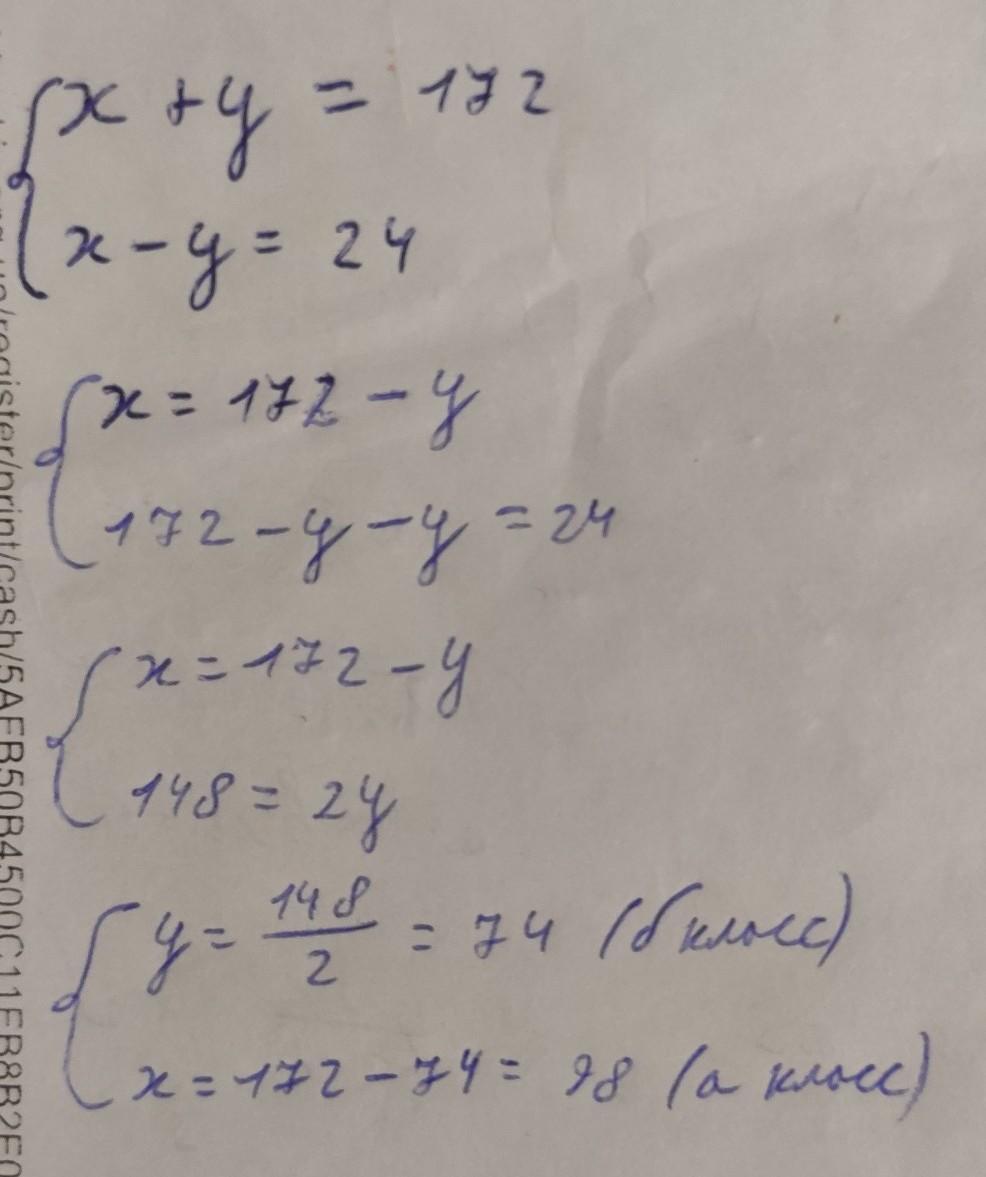 x + y = 172
x - y = 24
x = 172 - y
172 - y - y = 24
x = 172 - y
148 = 2y
y = 148/2 = 74 (б класс)
x = 172 - 74 = 98 (а класс)
register/print/cash/5AFB50B4500C11EB8B2E0